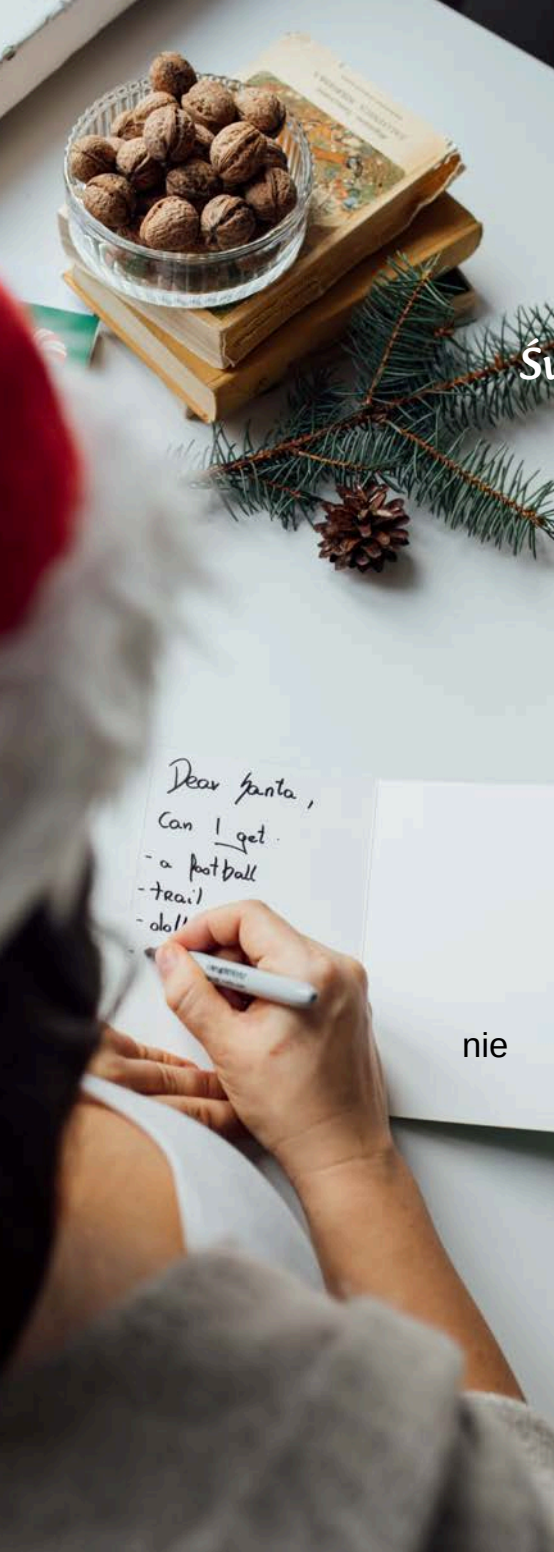 Św
Dear Santa,
Can I get
- a football
- trail
- doll
-
nie